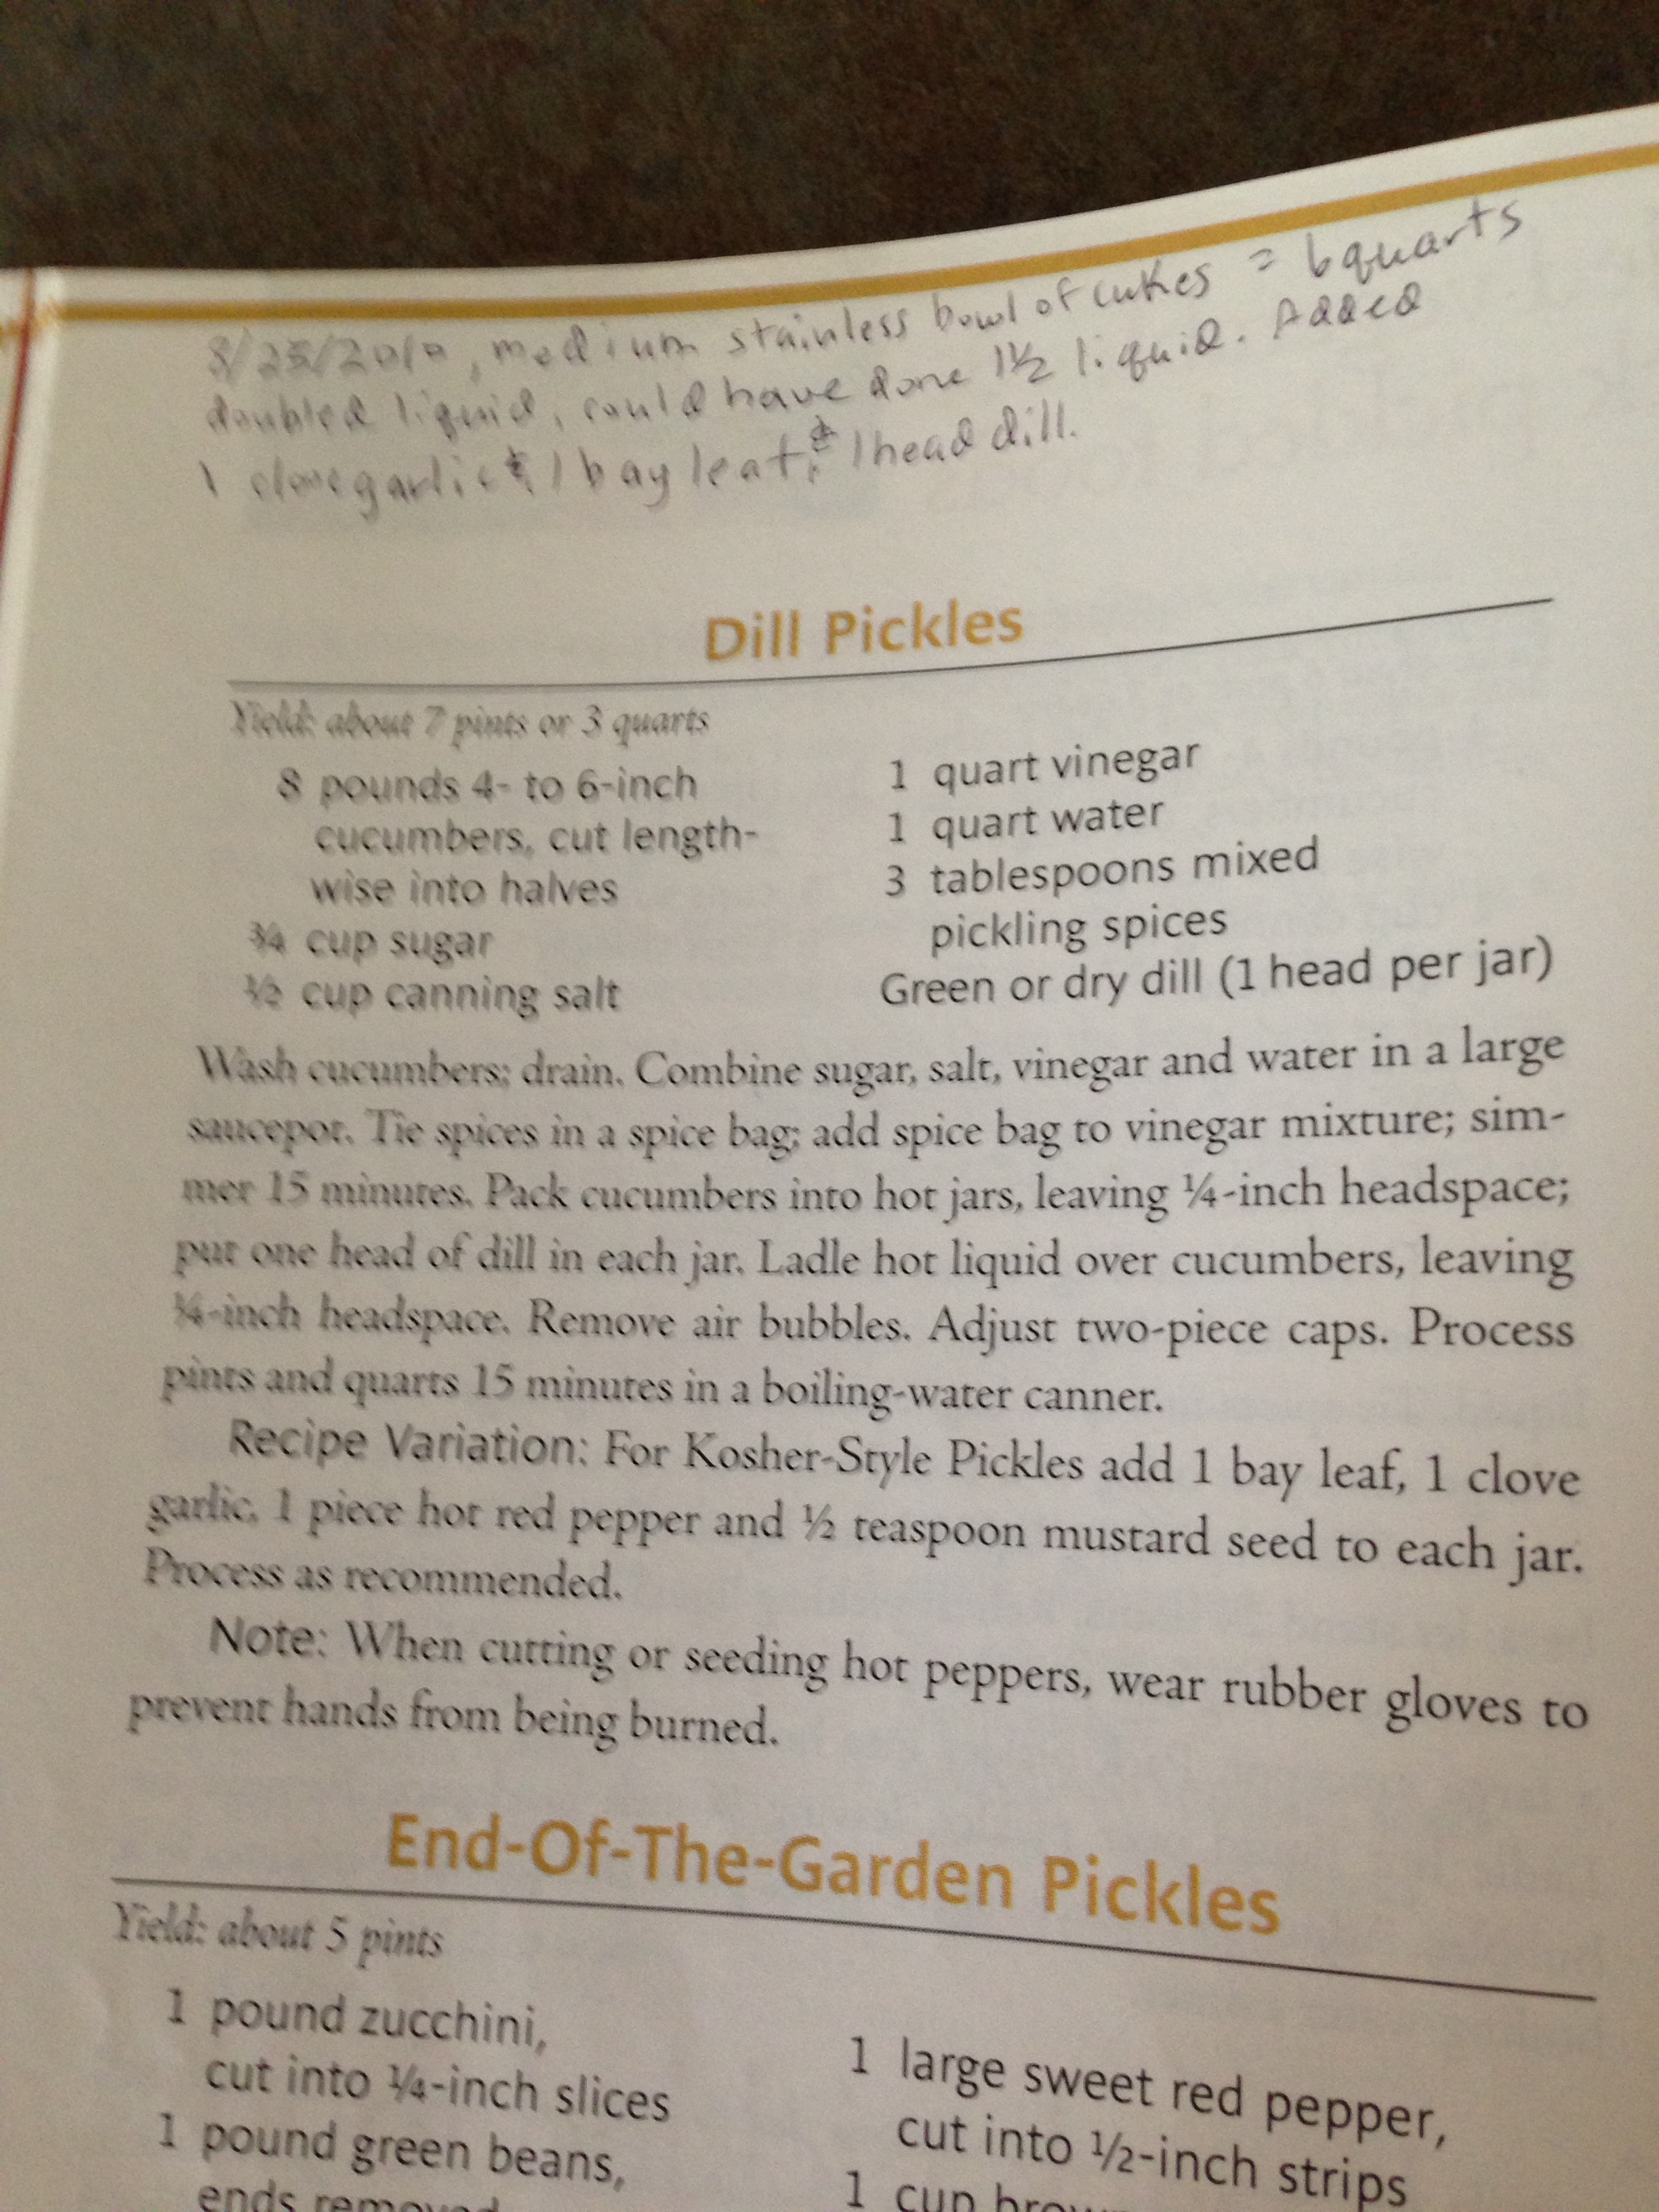 medium stainless bowl of cukes = 6 quarts
doubled liquid, could have done 1½ liquid. Added
1 clove garlic & 1 bay leaf, & 1 head dill.
Dill Pickles
Yield: about 7 pints or 3 quarts
8 pounds 4- to 6-inch
cucumbers, cut length-
wise into halves
¾ cup sugar
½ cup canning salt
1 quart vinegar
1 quart water
3 tablespoons mixed
pickling spices
Green or dry dill (1 head per jar)
Wash cucumbers; drain. Combine sugar, salt, vinegar and water in a large
saucepot. Tie spices in a spice bag; add spice bag to vinegar mixture; sim-
mer 15 minutes. Pack cucumbers into hot jars, leaving ¼-inch headspace;
put one head of dill in each jar. Ladle hot liquid over cucumbers, leaving
¼-inch headspace. Remove air bubbles. Adjust two-piece caps. Process
pints and quarts 15 minutes in a boiling-water canner.
Recipe Variation: For Kosher-Style Pickles add 1 bay leaf, 1 clove
garlic, 1 piece hot red pepper and ½ teaspoon mustard seed to each jar.
Process as recommended.
Note: When cutting or seeding hot peppers, wear rubber gloves to
prevent hands from being burned.
End-Of-The-Garden Pickles
Yield: about 5 pints
1 pound zucchini,
cut into ¼-inch slices
1 pound green beans,
ends removed
1 large sweet red pepper,
cut into ½-inch strips
1 cup